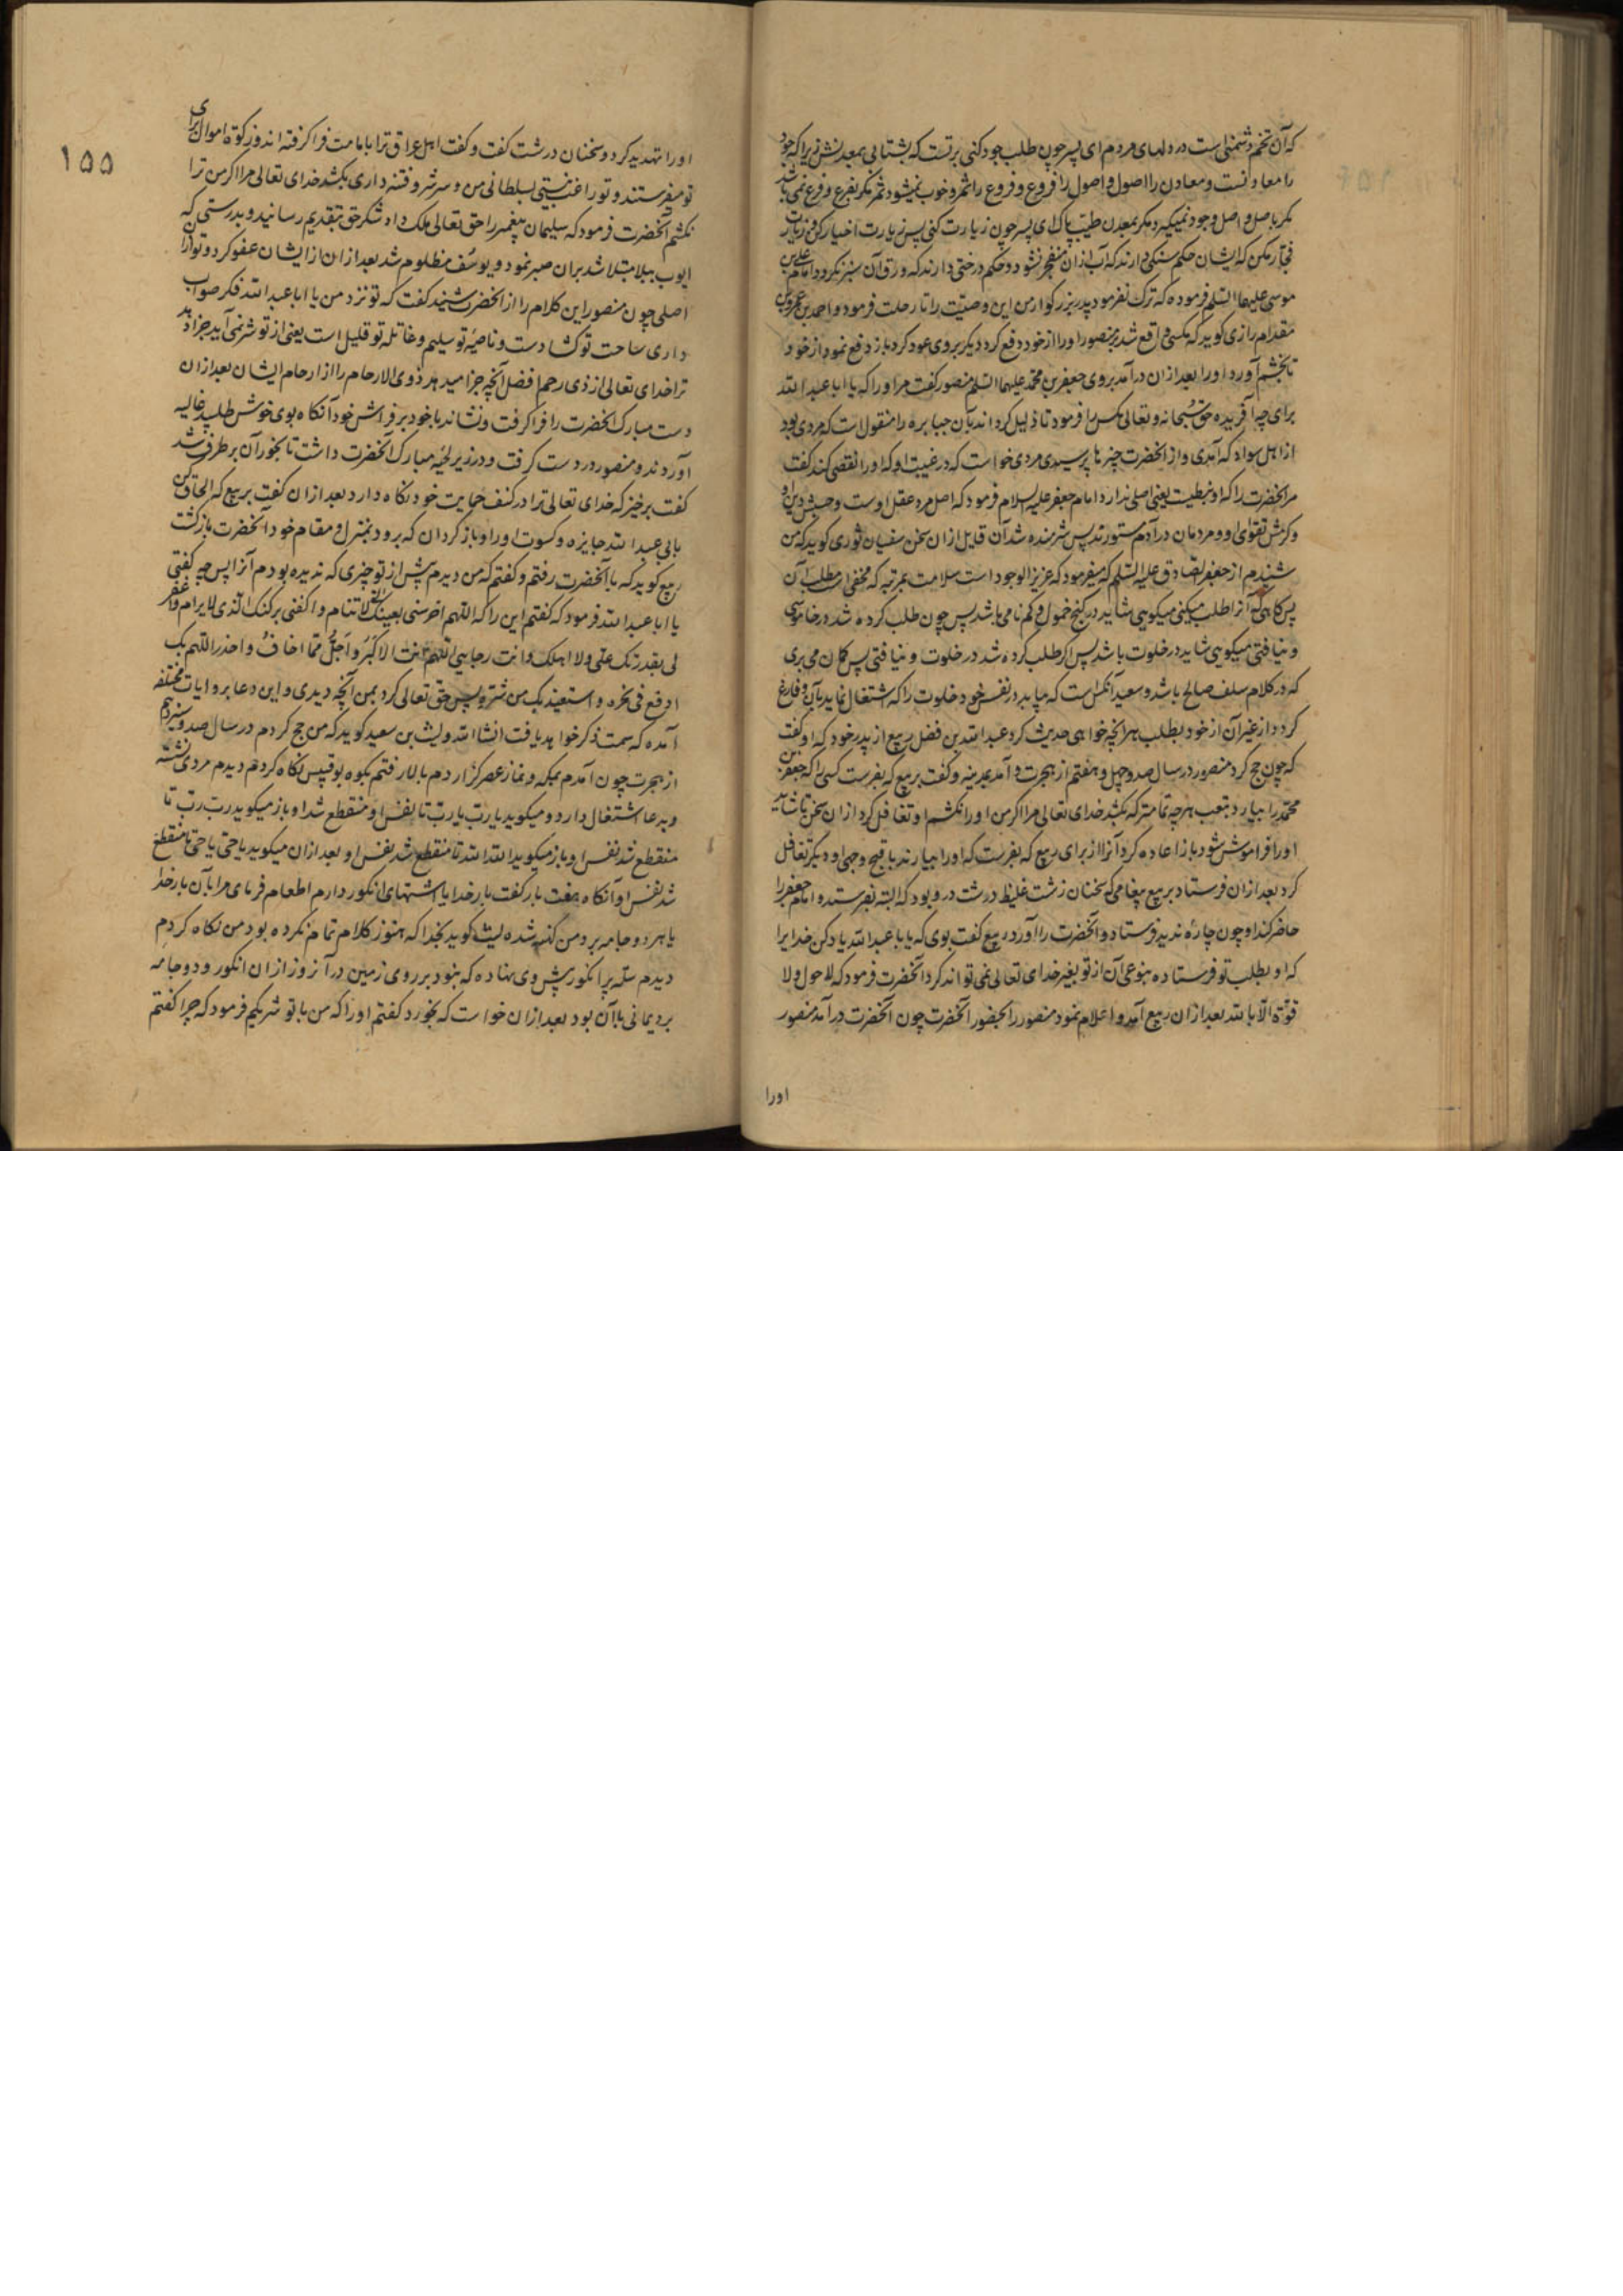 که آن تخم دشمنی است در دلهای مردم ای پسر چون طلب جود کنی بر تست که بشتابی بمعدنش زیرا که جود
را معادنست و معادن را اصول و اصول را فروع و فروع را ثمر و خوب نمیشود ثمر مکر بفرع و فرع نمی باشد
مکر باصل و اصل وجود نمیکیرد مکر بمعدن طیب پاک ای پسر چون زیارت کنی پس زیارت اخیار کن و زیارت
فجار مکن که ایشان حکم سنکی دارند که آب از ان منفجر نشود و حکم درختی دارند که ورق آن سبز نکردد و امام علی بن
موسی علیهما السلم فرموده که ترک نفرمود پدر بزرکوار من این وصیت را تا رحلت فرمود و احمد بن عمرو بن
مقدام رازی کوید که مکسی واقع شد بر منصور او را از خود دفع کرد دیکر بروی عود کرد باز دفع نمود از خود
تا بخشم آورد او را بعد از ان در آمد بروی جعفر بن محمد علیهما السلم منصور کفت مر او را که یا ابا عبد الله
برای چه آفریده حق سبحانه و تعالی مکس را فرمود تا ذلیل کرداند بآن جبابره را منقولست که مردی بود
از اهل سواد که آمدی و از آنحضرت چیزها پرسیدی مردی خواست که در غیبت او که او را نقصی کند کفت
مر آنحضرت را که او نبطیست یعنی اصلی ندارد امام جعفر علیه السلام فرمود که اصل مرد عقل اوست و حسبش دین او
و کرمش تقوای او و مردمان در آدم مستورند پس شرمنده شد آن قایل از ان سخن سفیان ثوری کوید که من
شنیدم از جعفر الصادق علیه السلم که میفرمود که عزیز الوجود است سلامت بمرتبه که مخفی است مطلب آن
پس کاهی که آنرا طلب میکنی میکویی شاید در کنج خمول و کم نامی باشد پس چون طلب کرده شد در خاموشی
و نیافتی میکویی شاید در خلوت باشد پس اکر طلب کرده شد در خلوت و نیافتی پس کمان می بری
که در کلام سلف صالح باشد و سعید آنکس است که بیابد در نفس خود خلوت را که اشتغال نماید بآن و فارغ
کردد از غیر آن از خود بطلب هر آنچه خواهی حدیث کرد عبد الله بن فضل ربیع از پدر خود که او کفت
که چون حج کرد منصور در سال صد و چهل و هفتم از هجرت و آمد بمدینه و کفت بربیع که بفرست کسی را که جعفر بن
محمد را بیارد بتعب هر چه تمامتر که بکشد خدای تعالی مرا اکر من او را نکشم او تغافل کرد از ان سخن تا شاید
او را فراموش شود باز اعاده کرد آنرا از برای ربیع که بفرست که او را بیارند باقبح وجهی او دیکر تغافل
کرد بعد از ان فرستاد بربیع پیغامی که سخنان زشت غلیظ درشت در و بود که البته بفرستد و امام جعفر را
حاضر کند او چون چاره ندید فرستاد و آنحضرت را آورد ربیع کفت بوی که یا با عبد الله یاد کن خدایرا
که او بطلب تو فرستاده بنوعی آن از تو بغیر خدای تعالی نمی تواند کرد آنحضرت فرمود که لا حول ولا
قوة الا بالله بعد از ان ربیع آمد و اعلام نمود منصور را بحضور آنحضرت چون آنحضرت در آمد منصور
اورا
۱۵۵
او را تهدید کرد و سخنان درشت کفت و کفت اهل عراق ترا بامامت فرا کرفته اند و زکوة اموال برای
تو میفرستند و تو راغب نیستی بسلطانی من و سر شر و فتنه داری بکشد خدای تعالی مرا اکر من ترا
نکشم آنحضرت فرمود که سلیمان پیغمبر را حق تعالی ملک داد شکر حق بتقدیم رسانید و بدرستی که
ایوب ببلا مبتلا شد بران صبر نمود و یوسف مظلوم شد بعد از ان از ایشان عفو کرد و تو از ان
اصلی چون منصور این کلام را از آنحضرت شنید کفت که تو نزد من یا ابا عبد الله فکر صواب
داری ساحت تو کشادست و ناصیه تو سلیم و غائله تو قلیل است یعنی از تو شر نمی آید جزا دهد
ترا خدای تعالی از ذی رحم افضل آنچه جزا میدهد ذوی الارحام را از ارحام ایشان بعد از ان
دست مبارک آنحضرت را فرا کرفت و نشاند با خود بر فراش خود آنکاه بوی خوش طلبید غالیه
آوردند و منصور در دست کرفت و در زیر لحیه مبارک آنحضرت داشت تا بخور آن بر طرف شد
کفت برخیز که خدای تعالی ترا در کنف حمایت خود نکاه دارد بعد از ان کفت بربیع که الحاق کن
بابی عبد الله جایزه و کسوت او را و باز کردان که برود بمنزل و مقام خود آنحضرت باز کشت
ربیع کوید که با آنحضرت رفتم و کفتم که من دیدم پیش از تو چیزی که ندیده بودم آنرا پس چه کفتی
یا ابا عبد الله فرمود که کفتم این را که اللهم احرسنی بعینک التی لا تنام و اکفنی برکنک الذی لا یرام واغفر
لی بقدرتک علی ولا اهلک وانت رجایی اللهم انت اکبر و اجل مما اخاف و احذر اللهم بک
ادفع فی نحره و استعیذ بک من شره پس حق تعالی کرد بمن آنچه دیدی و این دعا بروایات مختلفه
آمده که سمت ذکر خواهد یافت انشا الله و لیث بن سعید کوید که من حج کردم در سال صد و سیزدهم
از هجرت چون آمدم بمکه و نماز عصر کزاردم بالا رفتم بکوه بوقبیس نکاه کردم دیدم مردی نشسته
و بدعا اشتغال دارد و میکوید یا رب یا رب تا نفس او منقطع شد او باز میکوید رب رب تا
منقطع شد نفس او باز میکوید الله الله تا منقطع شد نفس او بعد از ان میکوید یا حی یا حی تا منقطع
شد نفس او آنکاه هفت بار کفت بار خدایا اشتهای انکور دارم اطعام فرمای مرا بآن بار خدا
یا هر دو جامه برد من کهنه شده لیث کوید بخدا که هنوز کلام تمام نکرده بود من نکاه کردم
دیدم سله پر انکور پیش وی نهاده که نبود بر روی زمین در آنروز از ان انکور و دو جامه
برد یمانی با آن بود بعد از ان خواست که بخورد کفتم او را که من با تو شریکم فرمود که چرا کفتم